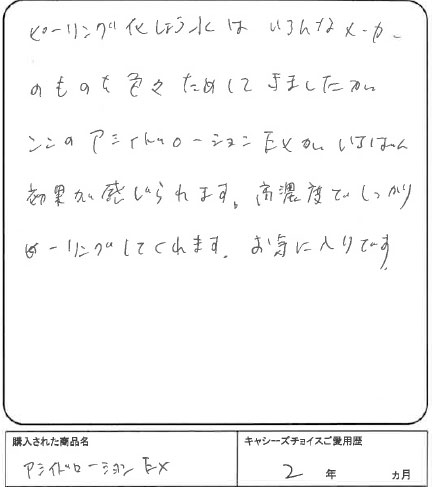 ピーリング化しょう水は いろんなメーカー
のものを色々ためしてきましたが
ココのアシドローションEXがいちばん
効果が感じられます。高濃度でしっかり
ピーリングしてくれます。お気に入りです
購入された商品名
キャシーズチョイスご愛用歴
アシドローションEX
2年 ヵ月